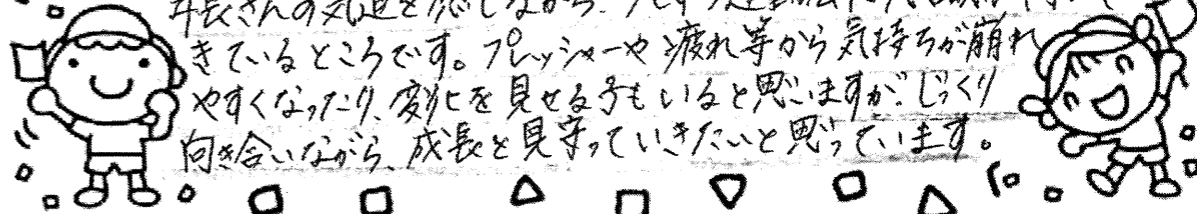 年長さんの気迫を感じながら、
きているところです。プレッシャーや疲れ等から気持ちが崩れ
やすくなったり、変化を見せる子もいると思いますが、じっくり
向き合いながら、成長を見守っていきたいと思っています。